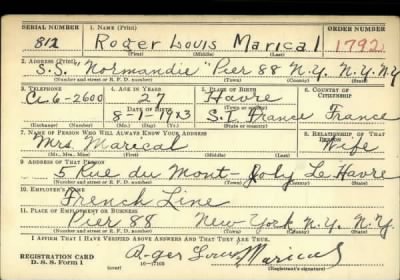 SERIAL NUMBER 1. NAME (Print) ORDER NUMBER
812 Roger Louis Marical 1792
(First) (Middle) (Last)
2. ADDRESS (Print)
S.S. "Normandie" Pier 88 N.Y. N.Y. N.Y.
(Number and street or R. F. D. number) (Town) (County) (State)
3. TELEPHONE 4. AGE IN YEARS 5. PLACE OF BIRTH 6. COUNTRY OF CITIZENSHIP
Ci 6-2600 27 Havre
DATE OF BIRTH (Town or county)
8-1-1913 S.I. France France
(Exchange) (Number) (Mo.) (Day) (Yr.) (State or country)
7. NAME OF PERSON WHO WILL ALWAYS KNOW YOUR ADDRESS 8. RELATIONSHIP OF THAT PERSON
Mrs. Marical Wife
(Mr., Mrs., Miss) (First) (Middle) (Last)
9. ADDRESS OF THAT PERSON
5 Rue du Mont-Joly Le Havre
(Number and street or R. F. D. number) (Town) (County) (State)
10. EMPLOYER'S NAME
French Line
11. PLACE OF EMPLOYMENT OR BUSINESS
Pier 88 New York N.Y. N.Y.
(Number and street or R. F. D. number) (Town) (County) (State)
I AFFIRM THAT I HAVE VERIFIED ABOVE ANSWERS AND THAT THEY ARE TRUE.
REGISTRATION CARD
D. S. S. Form 1 (over) 16-17105 Roger Louis Marical
(Registrant's signature)